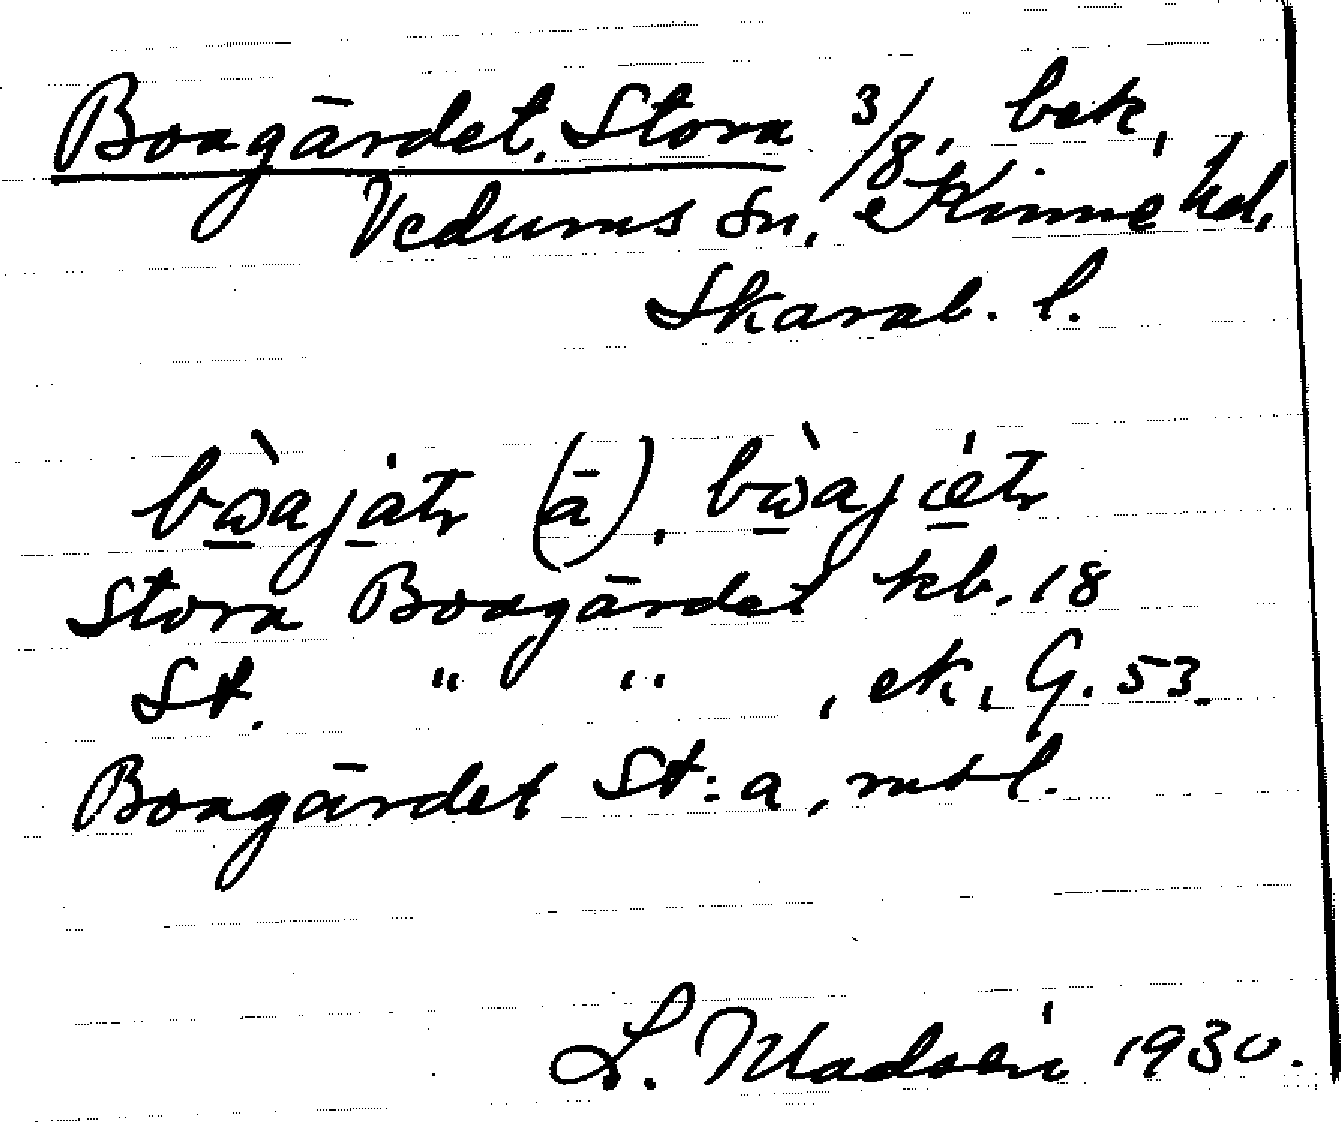 Boagärdet, Stora 3/8, bek,
Vedums sn, Kinne hd,
Skarab. l.
bòajatr (ā), bòajætr
Stora Boagärdet kb. 18
St. " " , ek, G. 53.
Boagärdet St:a, mtl.
L. Madsén 1930.